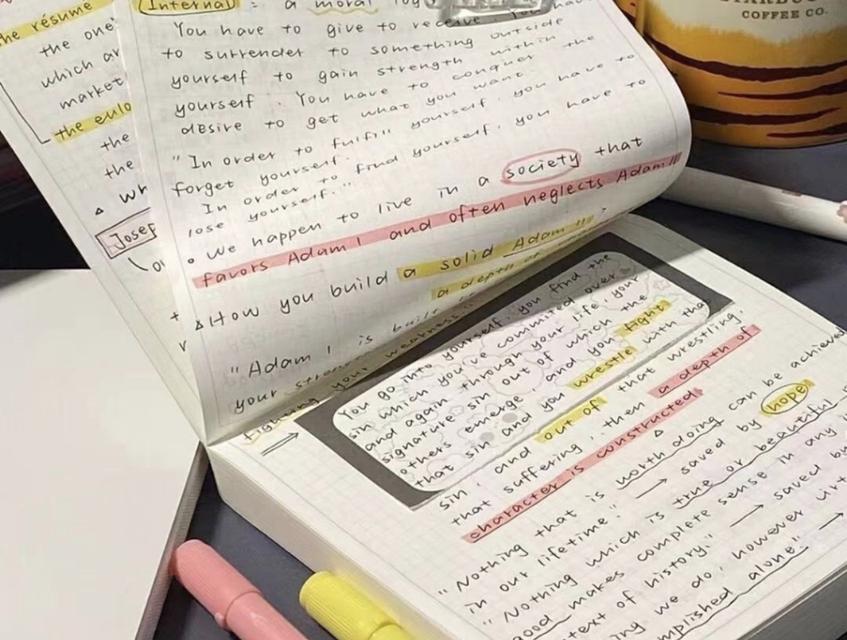 the résumé
the one
which ar
market
the eulo
the
the
wh
Josep
Internal : a moral log
You have to give to receive. You hav
to surrender to something outside
yourself to gain strength within
yourself. You have to conquer the
desire to get what you want.
"In order to fulfill yourself, you have to
forget yourself.
In order to find yourself, you have to
lose yourself."
• We happen to live in a society that
favors Adam I and often neglects Adam II
How you build a solid Adam II?
a depth of
"Adam I is built
your strengths
fighting your weakness
You go into yourself, you find the
sin which you've commited over
and again through your life, your
signature sin out of which the
others emerge and you fight
that sin and you wrestle with tha
sin, and out of that wrestling,
that suffering, then a depth of
character is constructed
"Nothing that is worth doing can be achieved
in our lifetime." → saved by hope
"Nothing which is true or beautiful
good makes complete sense in any i
text of history." → saved by
ng we do, however virt
mplished alone" →
COFFEE CO.